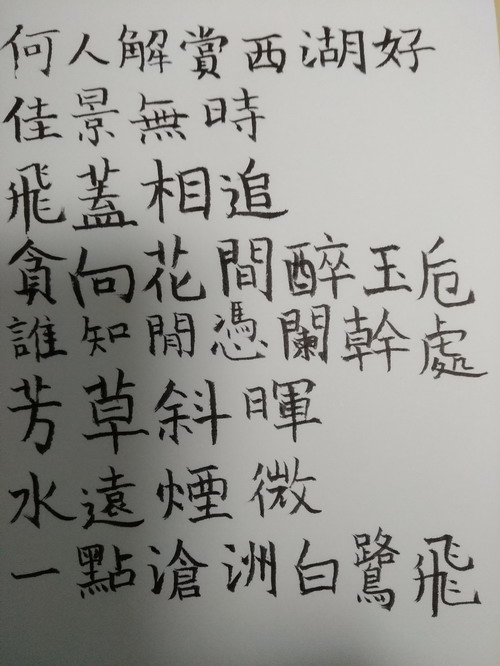 何人解賞西湖好
佳景無時
飛蓋相追
貪向花間醉玉卮
誰知閒憑闌幹處
芳草斜暉
水遠煙微
一點滄洲白鷺飛